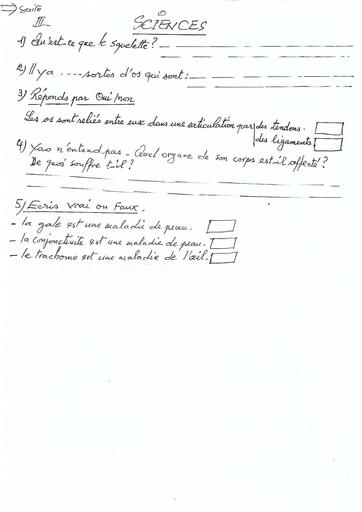 ⇒ Suite
III_ SCIENCES
1) Qu'est-ce que le squelette?
2) Il y a .....sortes d'os qui sont:
3) Réponds par Oui/non
Les os sont reliés entre eux dans une articulation par des tendons.
des ligaments.
4) Yao n'entend pas - Quel organe de son corps est-il affecté?
De quoi souffre t-il?
5) Ecris vrai ou Faux.
- la gale est une maladie de peau.
- la conjonctivite est une maladie de peau.
- le trachome est une maladie de l'œil.